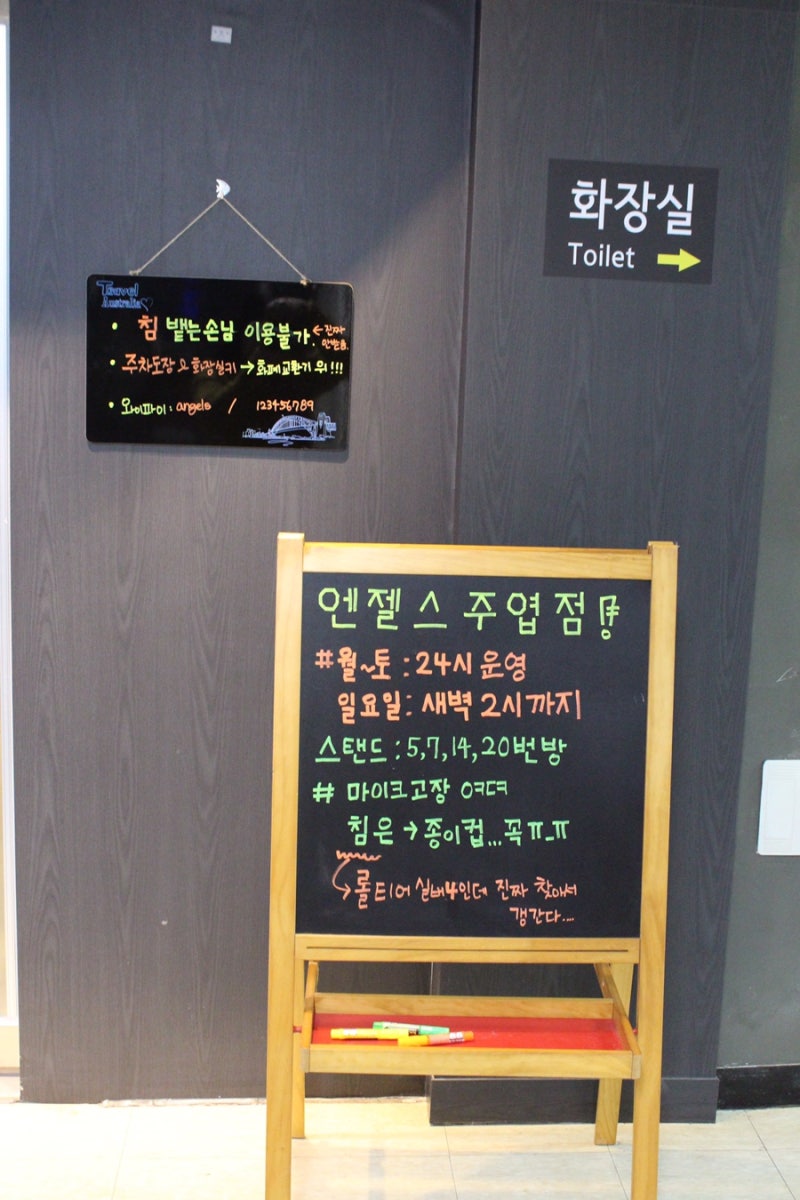 Travel
Australia
• 침 뱉는손님 이용불가. ← 진짜
안받음.
• 주차도장 & 화장실키 → 화폐교환기 위!!!
• 와이파이 : angels / 123456789
화장실
Toilet →
엔젤스 주엽점!
#월~토 : 24시 운영
일요일 : 새벽 2시까지
스탠드 : 5, 7, 14, 20번방
# 마이크고장 ㅇㅋㄷㅋ
침은 → 종이컵... 꼭ㅠ_ㅠ
롤티어 실버4인데 진짜 찾아서
갱간다....